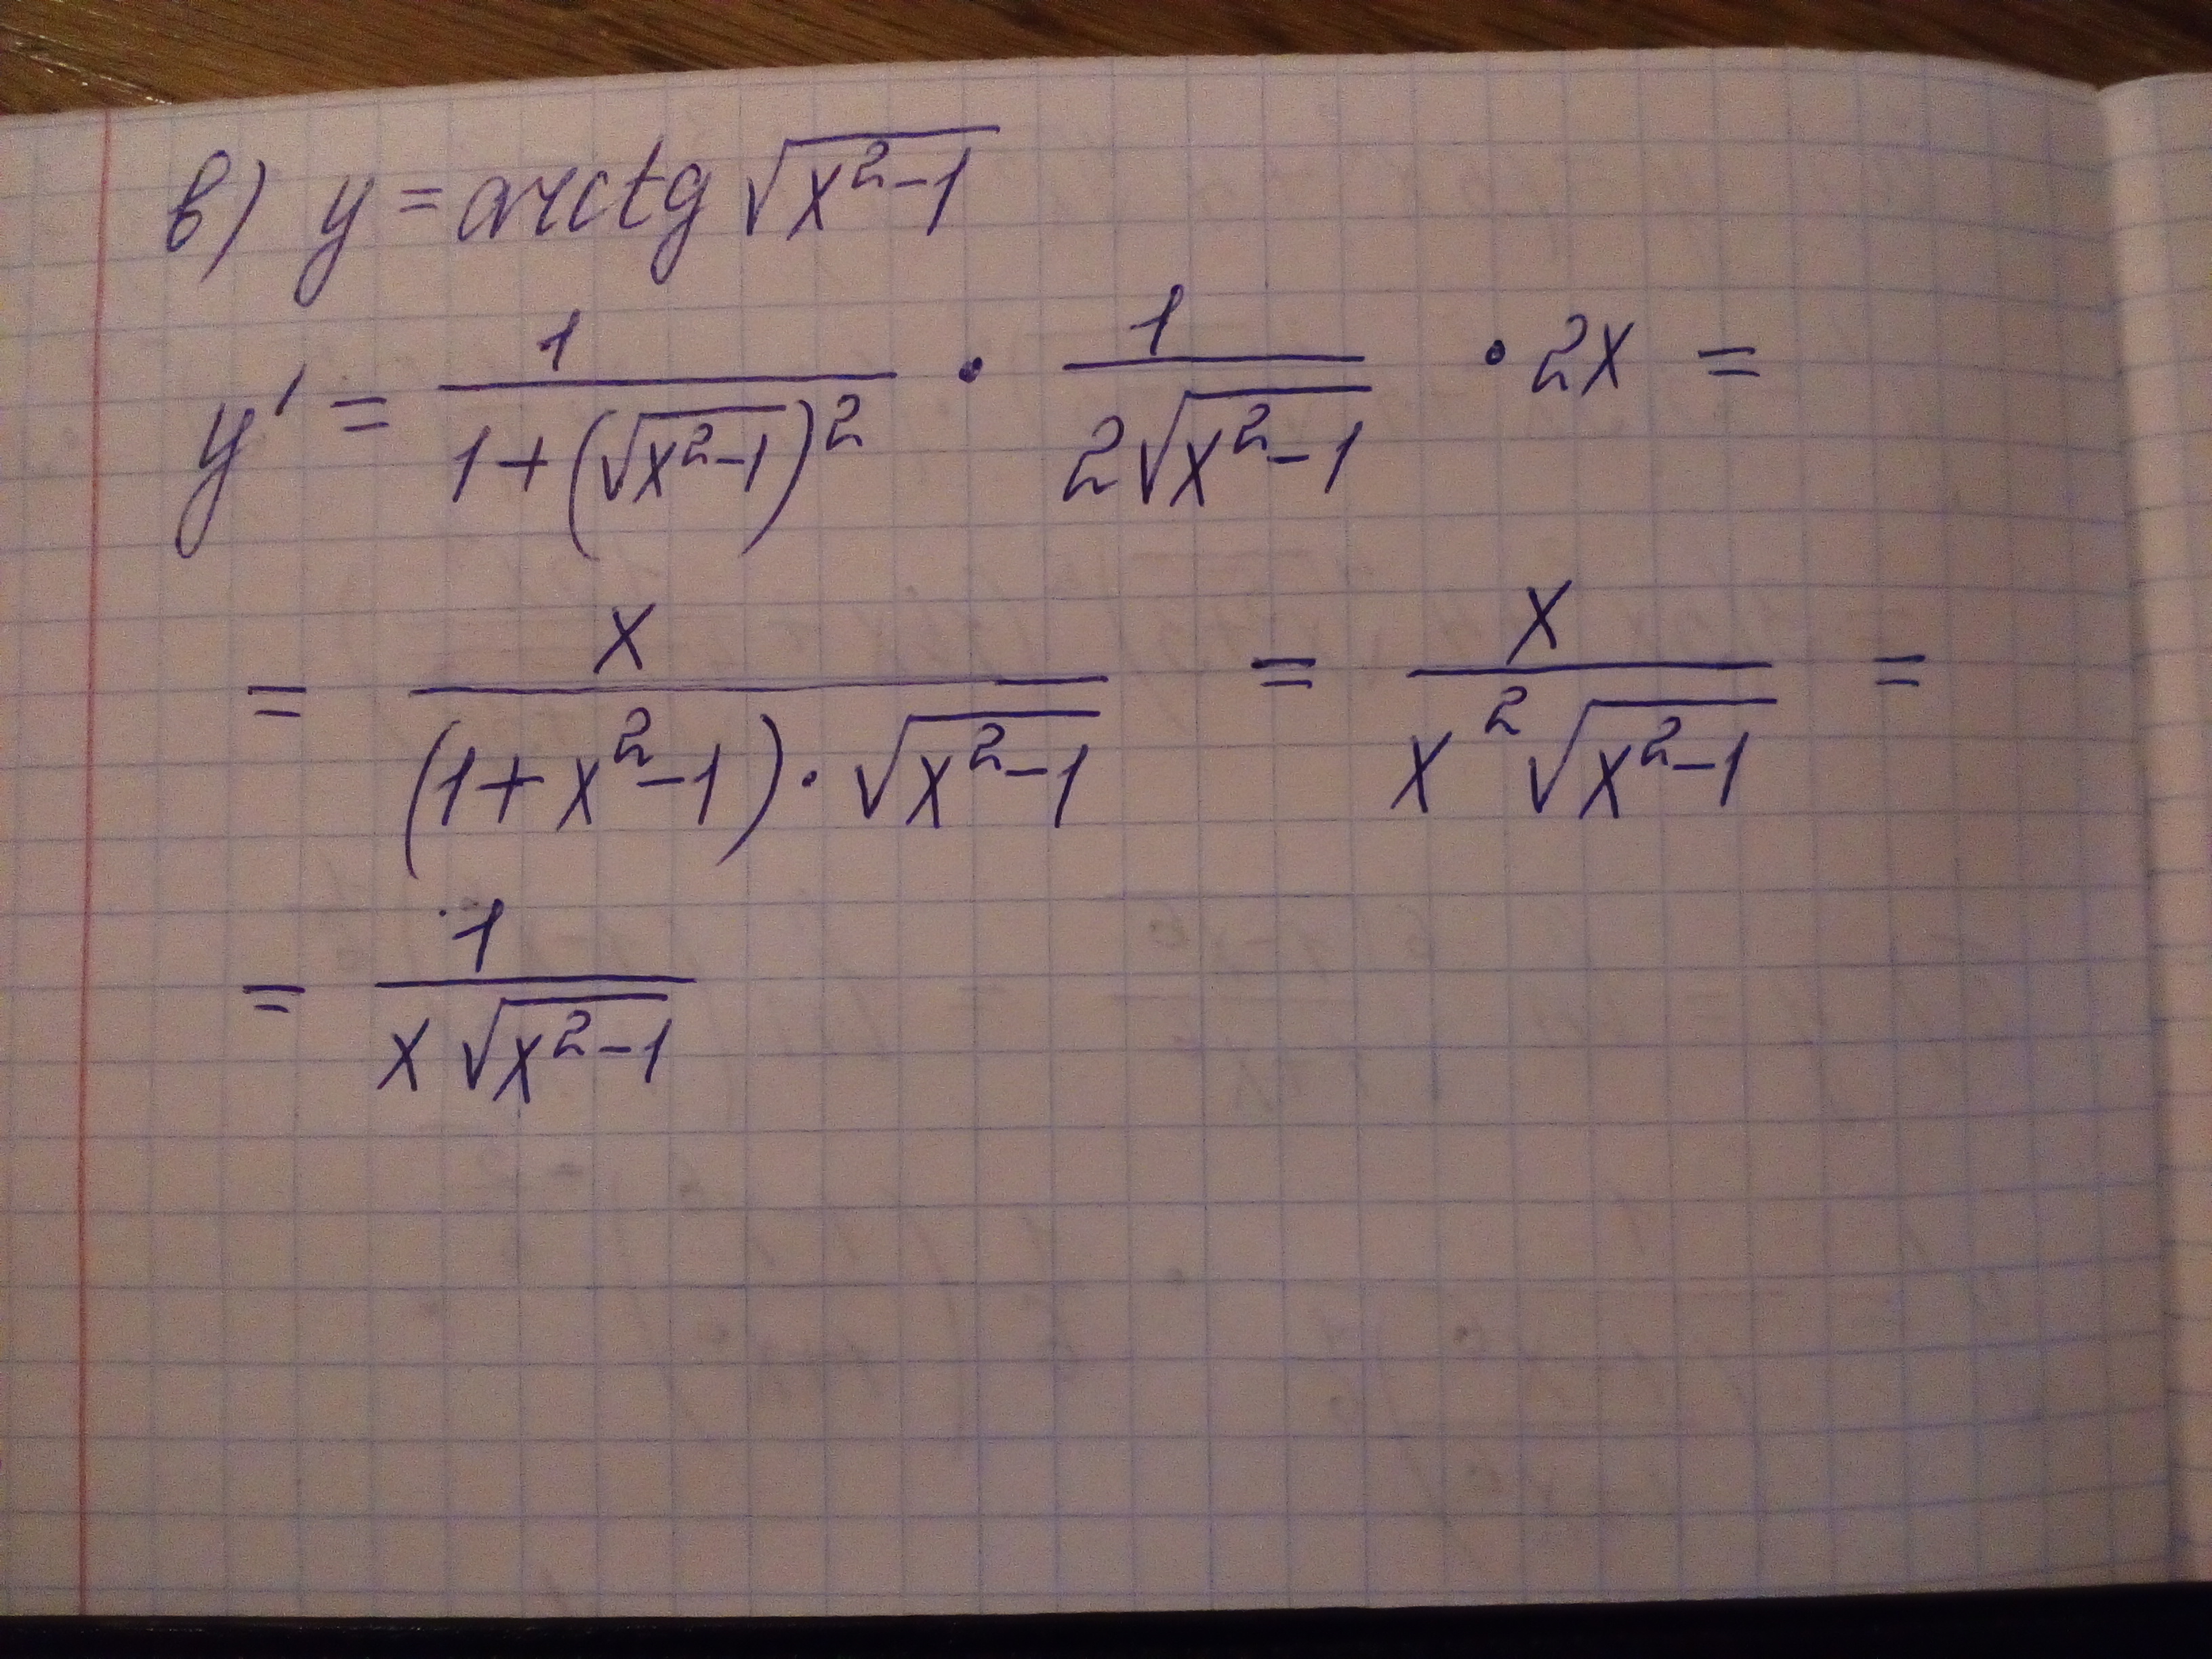 в) y = arctg √(x²-1)
y' = 1/(1+(√(x²-1))²) · 1/(2√(x²-1)) · 2x =
= x/((1+x²-1)·√(x²-1)) = x/(x²√(x²-1)) =
= 1/(x√(x²-1))